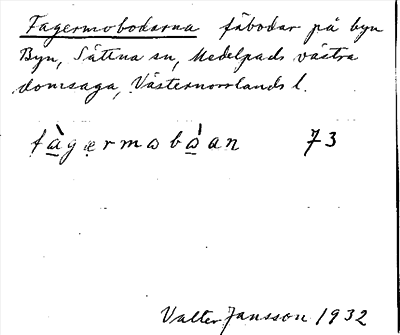 Fagermobodarna fäbodar på byn
Byn, Sättna sn, Medelpads västra
domsaga, Västernorrlands l.
fàgærmobòan 73
Valter Jansson 1932